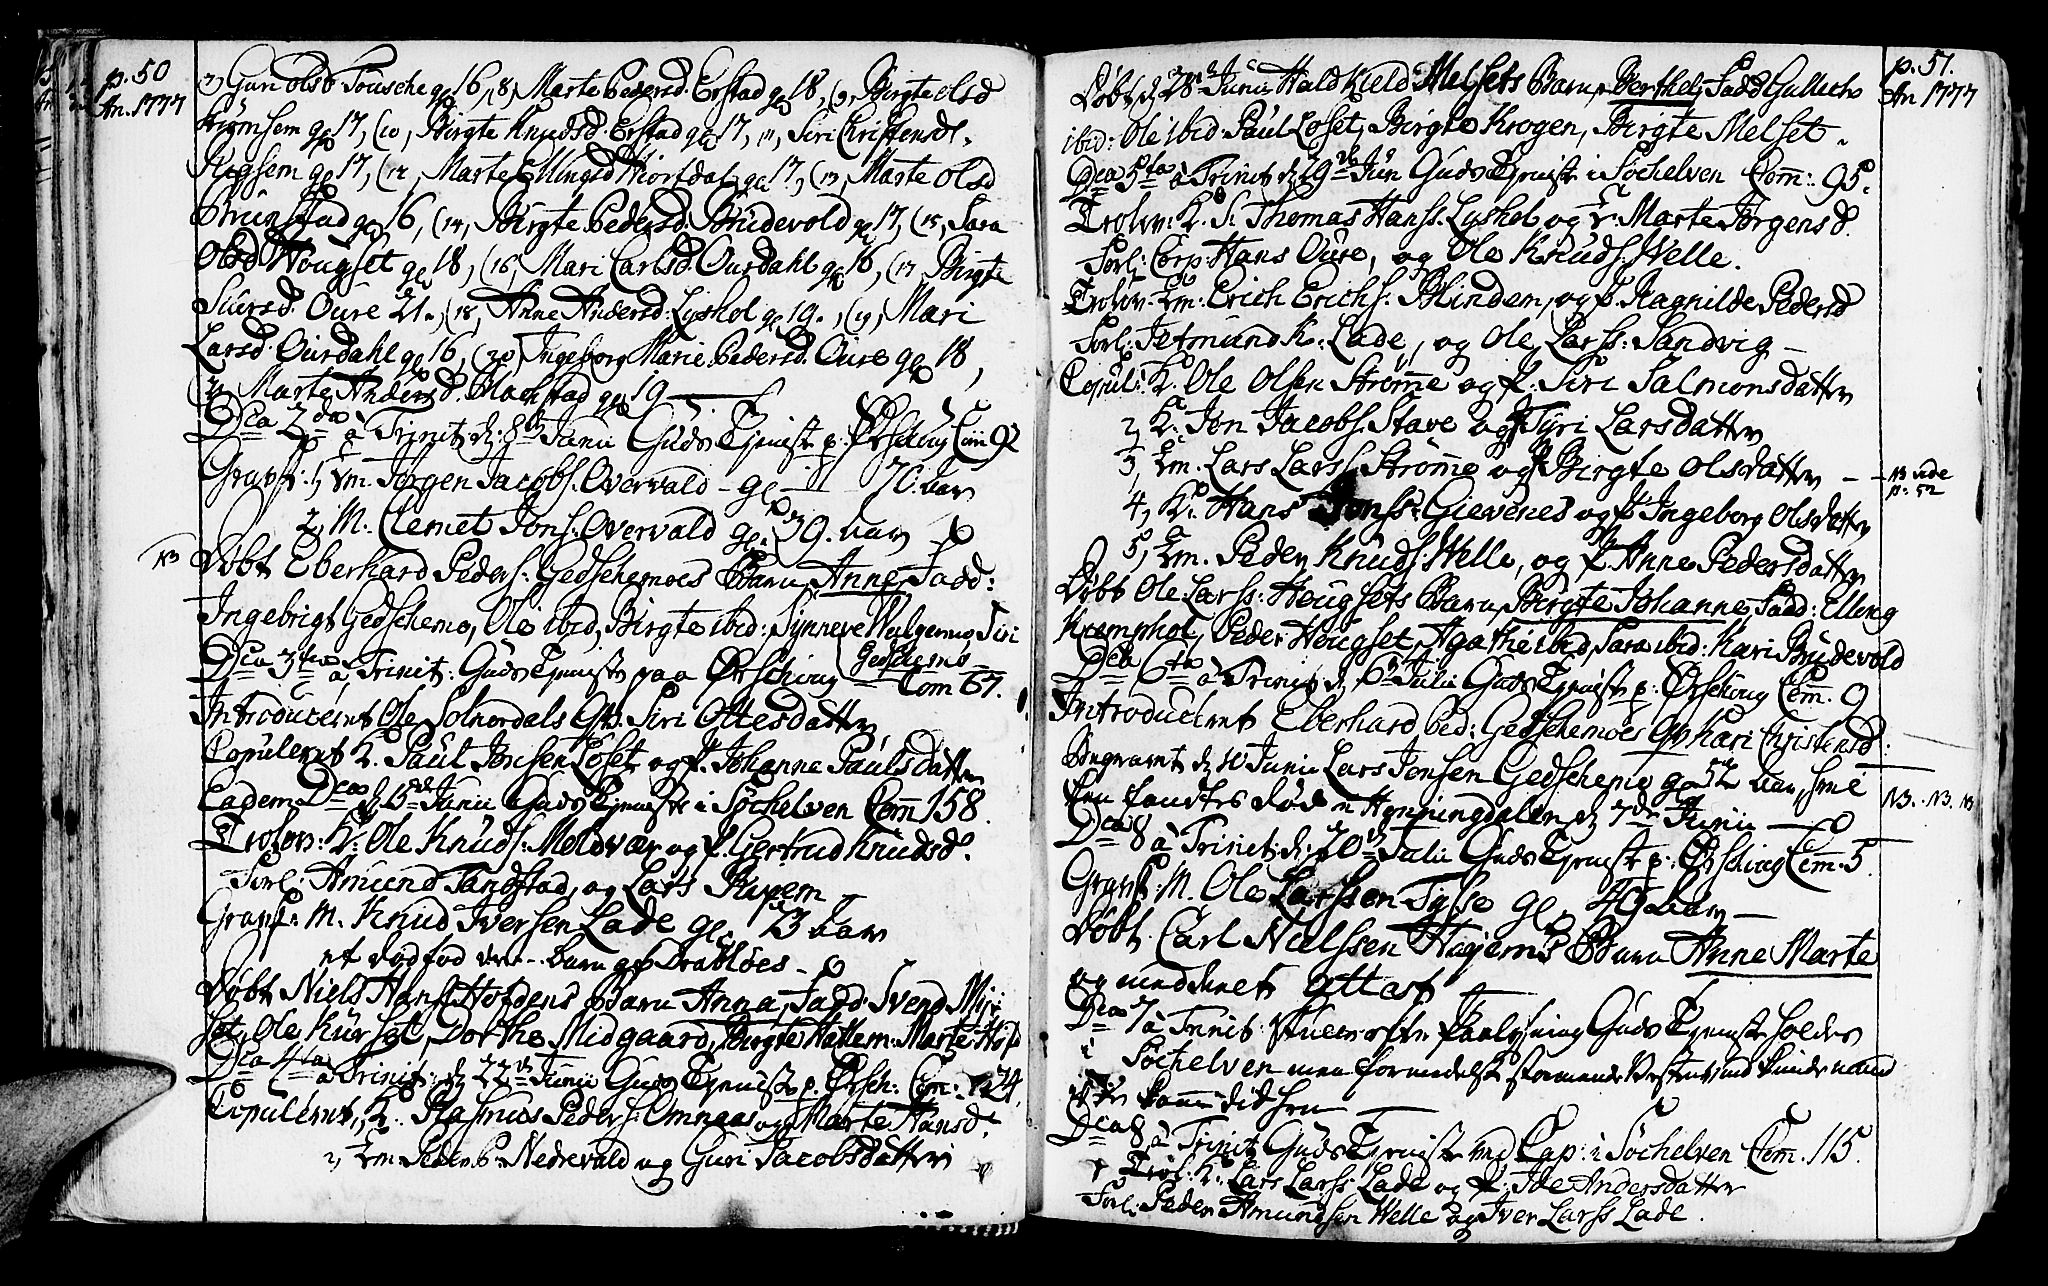 p. 50
An. 1777
7, Guri Olsd Tousche gl 16, (8, Marte Pedersd. Erstad gl 18, (9, Birgte Olsd
Strømsem gl 17, (10, Birgte Knudsd. Erstad gl 17, 11, Siri Christensd.
gl 17, (12, Marte Ellingsd Hiortdal gl 17, (13, Marte Olsd
Brunstad gl 16, (14, Birgte Pedersd. Brudevold gl 17, (15, Sara
Olsd Hougset gl 18, (16, Mari Carlsd. Ourdahl gl 16, (17, Birgte
Siursd. Oure 21., (18, Anne Andersd. Lyshol gl 19., (19, Mari
Larsd. Ourdahl gl 16, (20, Ingeborg Marie Pedersd. Oure gl 18,
21, Marte Andersd. Blachstad gl 19
Dca 2da à Trinit. d. 8de Junii Guds Tjeniste p. Ørschoug Com 92
Gravf. 1, Em. Jørgen Jacobs. Overvald - gl. 70. aar
2, M. Clemet Jons. Overvald gl. 39. aar
NB Døbt Eberhard Peders. Gedschemoes Barn Anne, Fadd:
Ingebrigt Gedschemo, Ole ibid, Birgte ibid: Synneve Siri
Gedschems
Dca 3tia à Trinit: Guds Tjeniste paa Ørschoug Com 67.
Introduceret Ole Solnordals Qv. Siri Ottesdatter
Copuleret K. Paul Løset og P. Johanne Paulsdatter
Eadem Dca d. 15de Junii Guds Tjeniste i Søchelven Com 158.
Trolov: K. Ole Knuds. Meldvær og P. Gertrud Knudsd.
Forl: Amund Tandstad, og Lars
Gravf. M. Knud Iversen Lade gl. 73 aar
et dødfød barn Drabløes
Døbt Niels Hans. Hofdens Barn Anna, Fadd. Svend
Ole Kurset, Dorthe Midgaard, Birgte Hattem. Marte
Dca 4ta à Trinit: d. 22de Junii Guds Tjeniste p. Ørsch: Com: 124.
Copuleret, K. Rasmus Peders. Omnaas og Marte Hansd.
2, Em. Peder P. Nedrevald og Guri Jacobsdatter
p. 51.
An 1777
Døbt d. 28de Junii Hald Kield Melsets Barn Berthe, Fadd
ibid: Ole ibid: Paul Løset, Birgte Krogen, Birgte Melset.
Dca 5ta à Trinit. d. 29de Jun Guds Tjeniste i Søchelven Com: 95.
Trolov: K. S. Thomas Hans. Lyshol og E. Marte Jørgensd.
Forl: Corp. Hans Oure, og Ole Knuds. Welle.
Trolov. Em: Erich Erichs. Blinden, og P. Ragnilde Pedersd
Forl: Jetmund K. Lade, og Ole Lars. Sandvig -
Copul: K. Ole Olsen Strømme og P. Siri Salmonsdatter
2, K. Jon Jacobs. Stave og Tyri Larsdatter
3, Em. Lars Lars. Strømme og P. Birgte Olsdatter - - NB vide
p. 52
4, K. Hans Jonss. Gievenes og P. Ingeborg Olsdatter
5, Em. Peder Knuds. Welle, og P. Anne Pedersdatter
Døbt Ole Larss: Hougsets Barn Birgte Johanne, Fadd: Elling
Kremphol, Peder Hougset, Agathe ibid, Sara ibid: Kari Brudevold
Dca 6ta à Trinit d. 6te Julii Guds Tjeniste p: Ørschoug Com. 9
Introduceret Eberhard Ped: Gedschemoes Qv Kari Christensd.
Begravet d. Junii Lars Jonsen Gedschemo gl 52 aar, som
fandtes død i Honningdalen d. 7de Junii
NB. NB. NB
Dca 8 à Trinit. d. 20de Julii Guds Tjeniste p. Ørschoug Com. 5.
Gravf. M. Ole Larssen Tysse gl. 49 aar
Døbt. Carl Nielssen Hagems Barn Anne Marte
og attest
Dca 7 à Trinit: skulle efter Guds Tjeniste holdes
i Søchelven men formedelst stormende kunde
komme did hen
Dca 8 à Trinit Guds Tjeniste ved Cap: i Søchelven Com. 115.
Trol: K. Lars Larss. Lade og P. Ide Andersdatter
Forl: Peder Amundsen Welle og Iver Larss Lade.